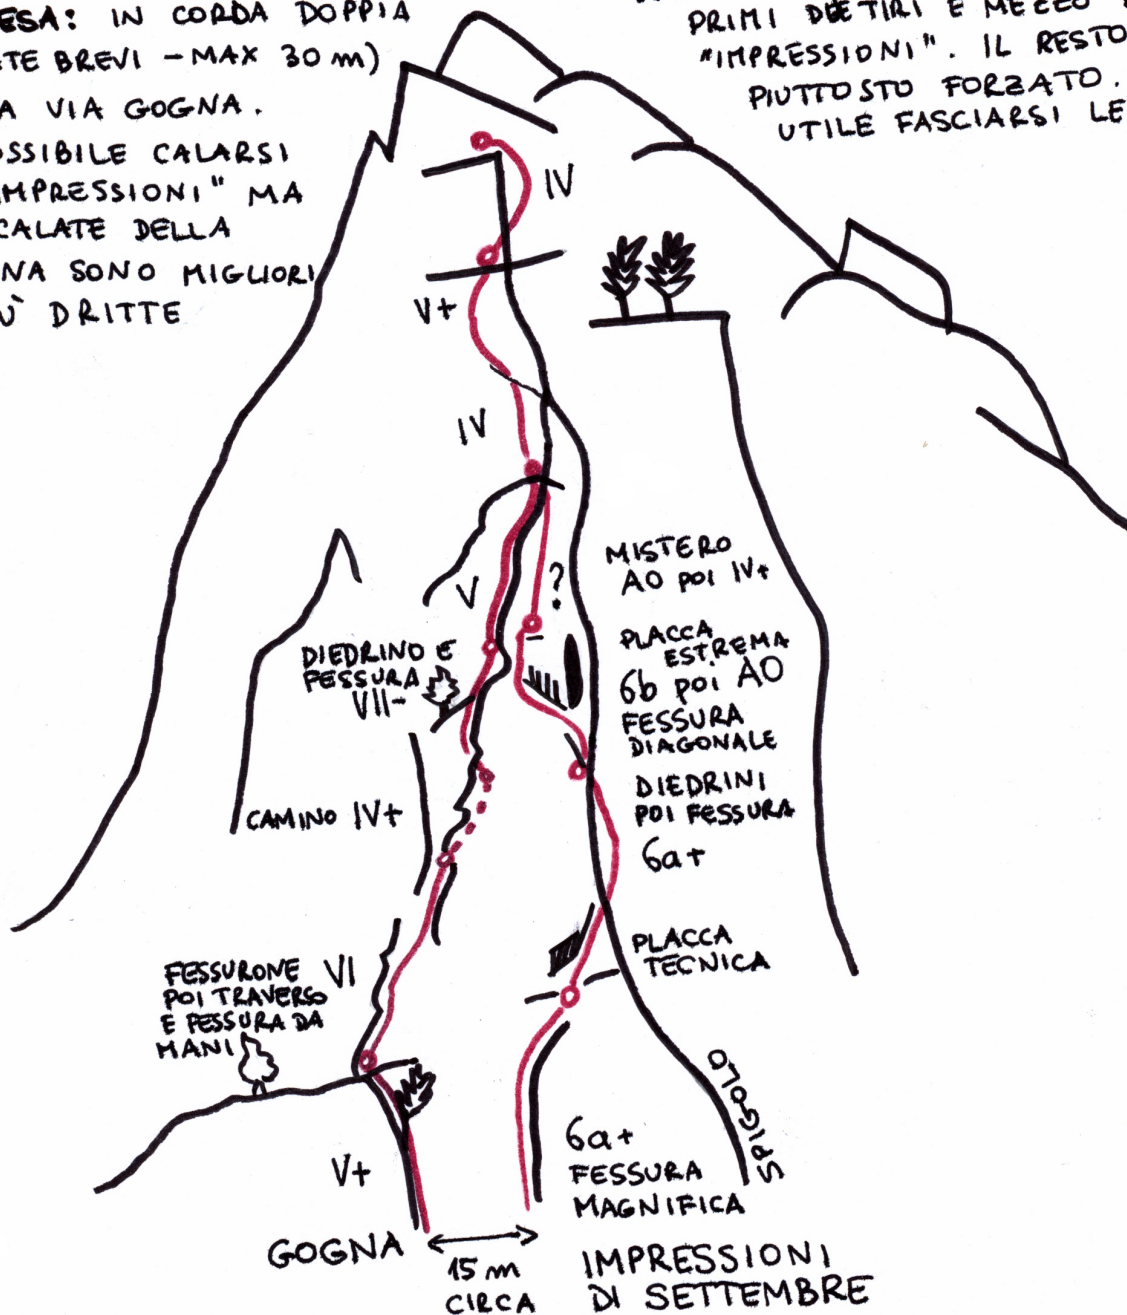 ESA: IN CORDA DOPPIA
TE BREVI - MAX 30 m)
A VIA GOGNA.
OSSIBILE CALARSI
MPRESSIONI" MA
CALATE DELLA
NA SONO MIGLIORI
Ù DRITTE
PRIMI DUE TIRI E MEZZO
"IMPRESSIONI". IL RESTO
PIUTTOSTO FORZATO.
UTILE FASCIARSI LE
IV
V+
IV
V
?
MISTERO
A0 POI IV+
PLACCA
ESTREMA
6b poi A0
FESSURA
DIAGONALE
DIEDRINO E
FESSURA
VII-
DIEDRINI
POI FESSURA
6a+
CAMINO IV+
PLACCA
TECNICA
FESSURONE VI
POI TRAVERSO
E FESSURA DA
MANI
SPIGOLO
V+
6a+
FESSURA
MAGNIFICA
GOGNA
15 m
CIRCA
IMPRESSIONI
DI SETTEMBRE